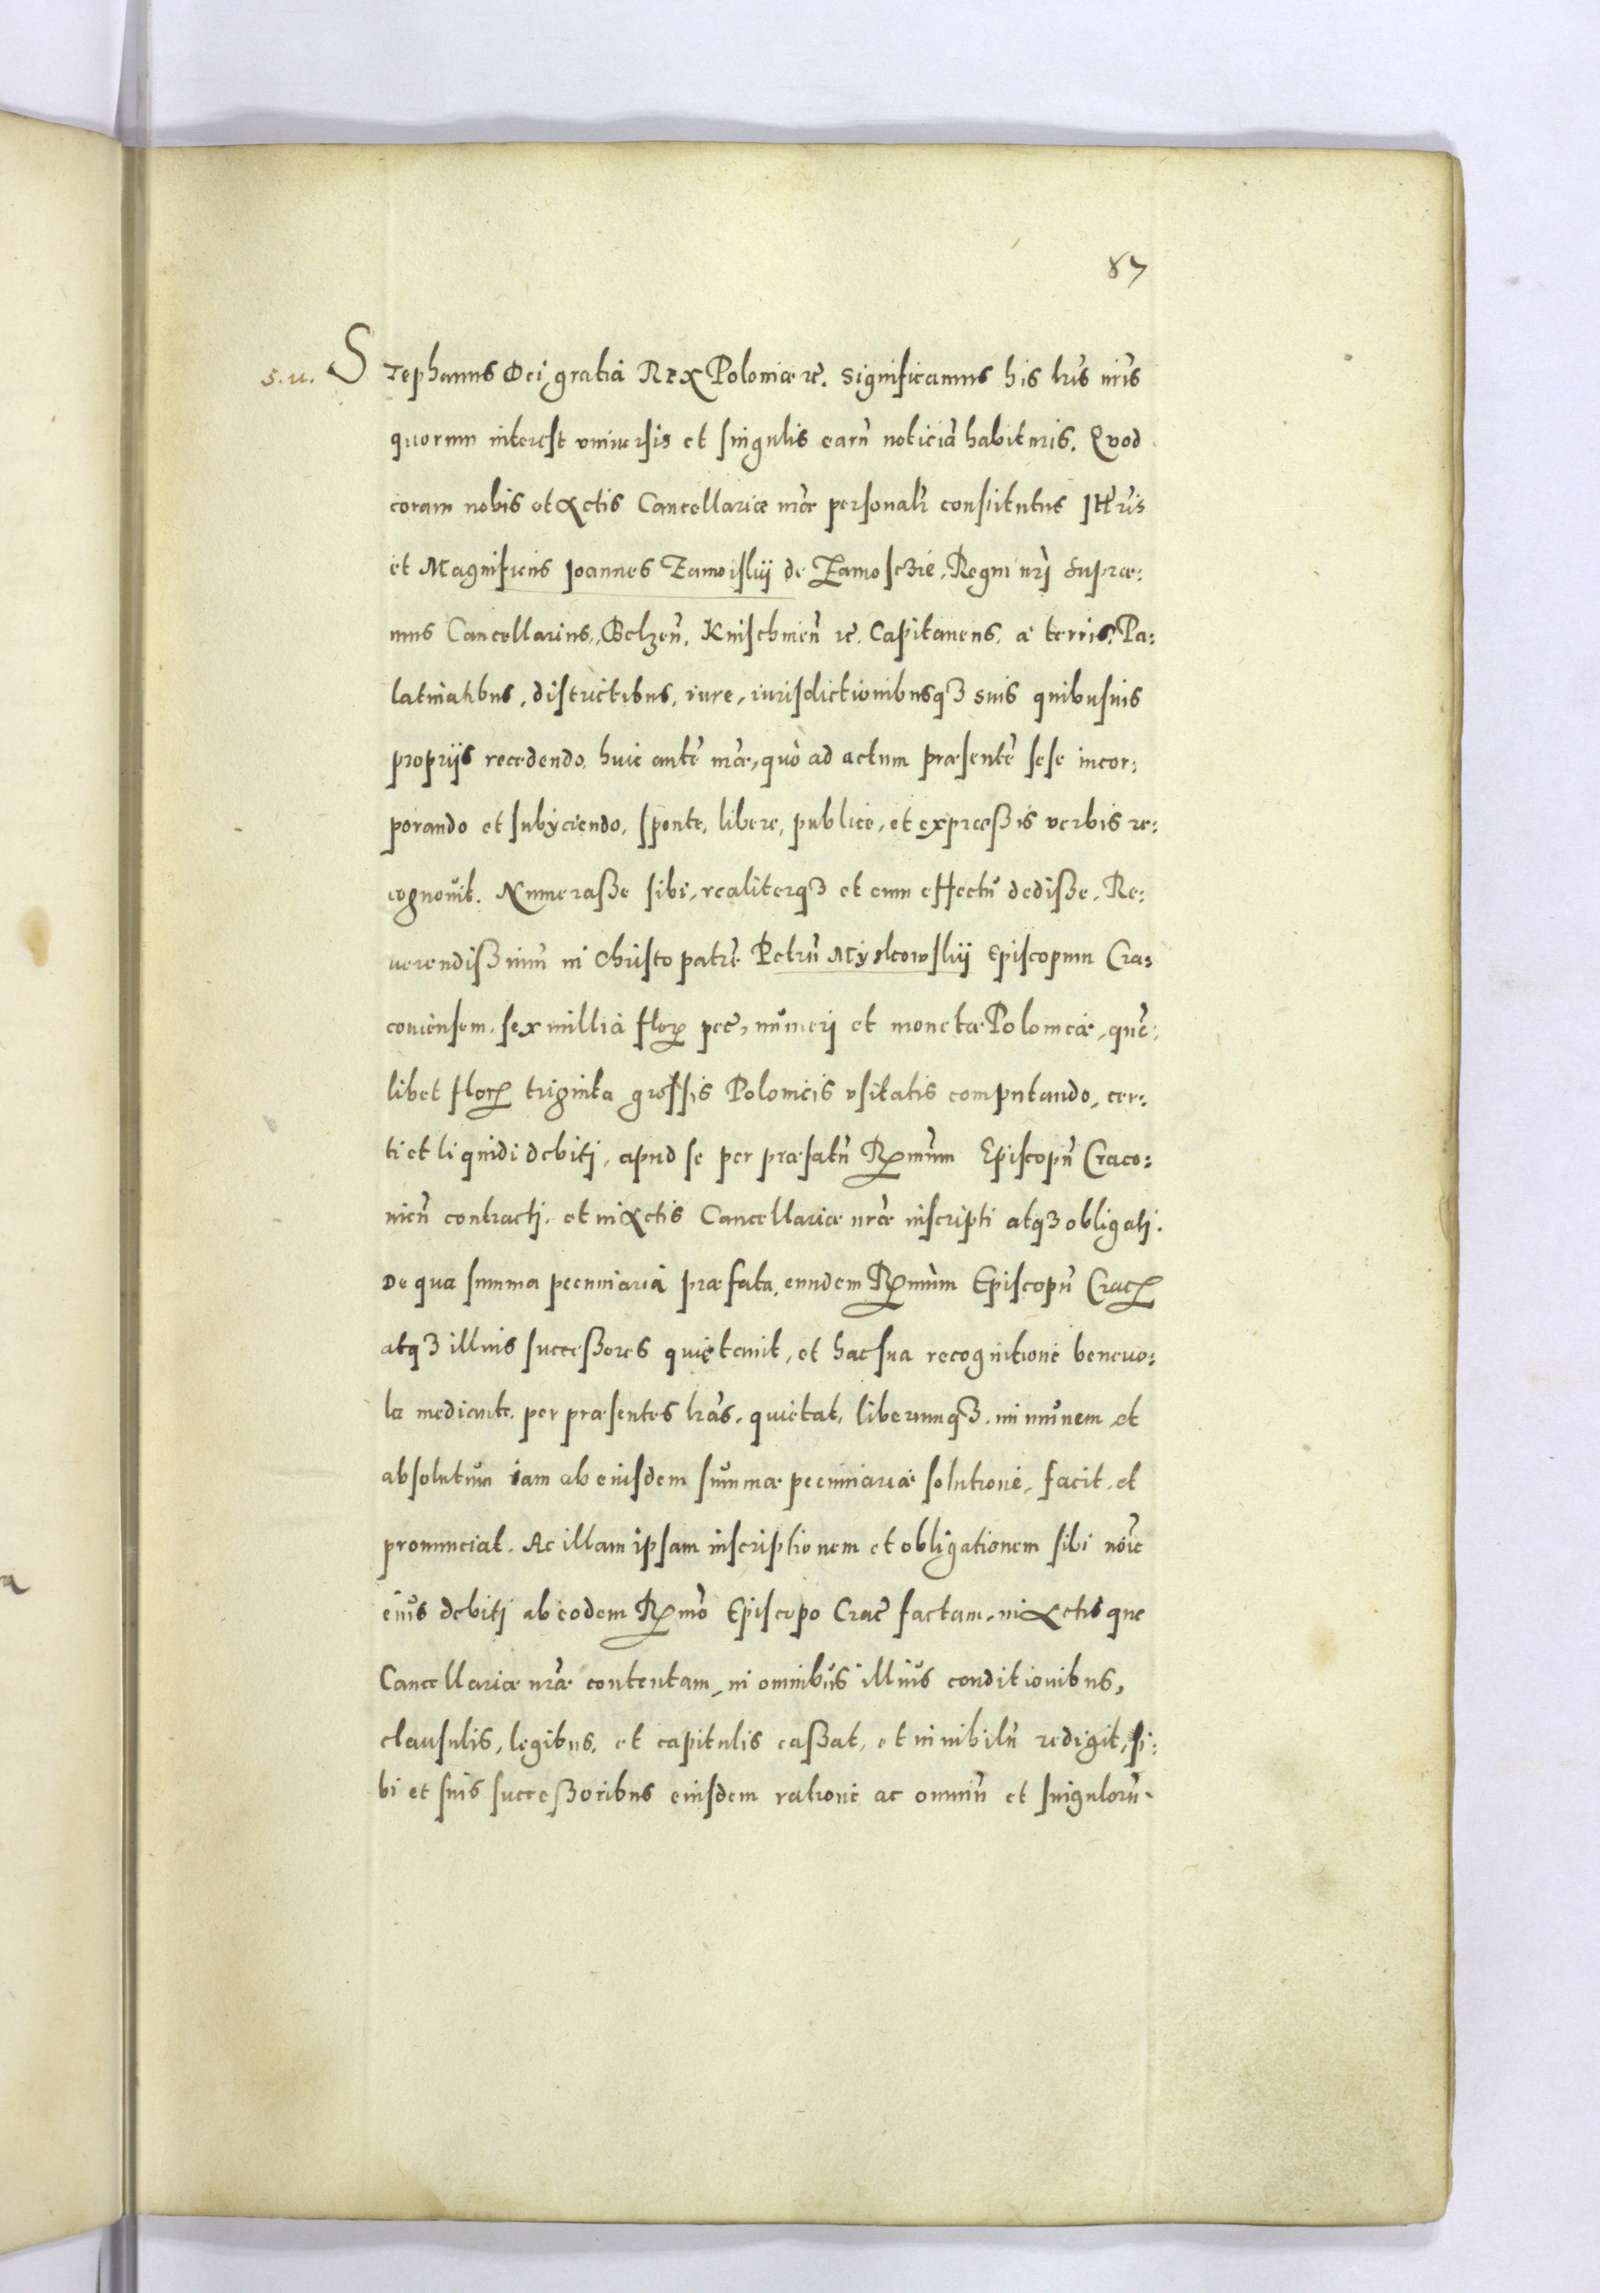 87
s.u. Stephanus Dei gratia Rex Poloniæ etc. Significamus his lris nris
quorum interest vniuersis et singulis earũ noticiã habituris. Quod
coram nobis et Actis Cancellariæ nræ personalr constitutus Illris
et Magnificus Ioannes Zamoiskij de Zamosczie, Regni nrj Supræ:
mus Cancellarius, Belzeñ. Knischineñ etc. Capitaneus, a terris, Pa:
latinatibus, districtibus, iure, iurisdictionibusqз suis quibusuis
proprijs recedendo, huic autẽ nræ, quò ad actum præsentẽ sese incor:
porando et subÿciendo, sponte, libere, publicè, et expræßis verbis re:
cognouit. Numeraße sibi, realiterqз et cum effectũ dediße, Re:
uerendißimũ in Christo patrẽ Petrũ Myskowskij Episcopum Cra:
couiensem, sex millia flor pec, numerj et monetæ Polonicæ, quẽ:
libet flor triginta grossis Polonicis vsitatis computando, cer:
ti et liquidi debitj, apud se per præfatũ Rmũm Episcopũ Craco:
uieñ contractj, et in Actis Cancellariæ nræ inscripti atqз obligatj.
De qua summa pecuniaria præfata, eundem Rmũm Episcopũ Crac
atqз illius succeßores quietauit, et hac sua recognitione beneuo:
la mediante, per præsentes lras, quietat, liberumqз, immunem, et
absolutum iam ab eiusdem summæ pecuniariæ solutione, facit, et
pronunciat. Ac illam ipsam inscriptionem et obligationem sibi noĩe
eius debitj ab eodem Rmo Episcopo Crac factam, in Actisque
Cancellariæ nræ contentam, in omnibus illius conditionibus,
clausulis, legibus, et capitulis caßat, et in nihilũ redigit, si:
bi et suis succeßoribus eiusdem ratione ac omniũ et singulorũ